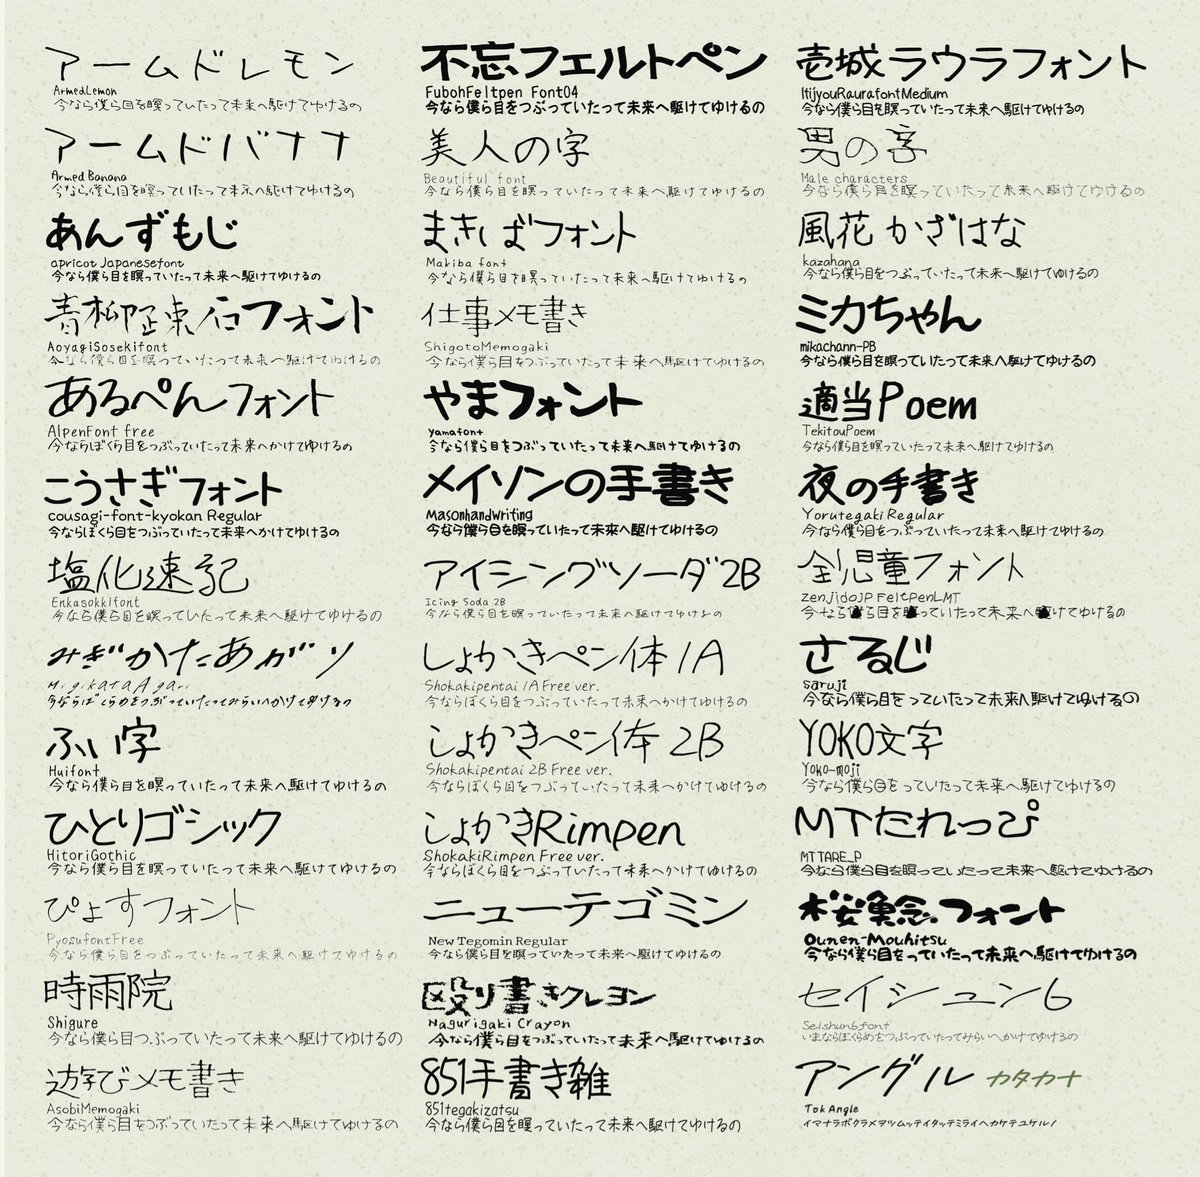 アームドレモン
ArmedLemon
今なら僕ら目を瞑っていたって未来へ駆けてゆける の
アームドバナナ
Armed Banana
今なら僕ら目を瞑っていたって未来へ駆けてゆけるの
あんずもじ
apricot Japanesefont
今なら僕ら目を瞑っていたって未来へ駆けてゆけるの
青柳疎石フォント
AoyagiSosekifont
今なら僕ら目を瞑っていたって未来へ駆けてゆけるの
あるぺんフォント
AlpenFont free
今ならぼくら目をつぶっていたって未来へかけてゆけるの
こうさぎフォント
cousagi-font-kyokan Regular
今ならぼくら目をつぶっていたって未来へかけてゆけるの
塩化速記
EnkasokkIfont
今なら僕ら目をつぶっていたって未来へ駆けてゆけるの
みぎかたあがり
MigikataAgari
今ならぼくらめをつぶっていたってみらいへかけてゆけるの
ふい字
Huifont
今なら僕ら目を瞑っていたって未来へ駆けてゆけるの
ひとりゴシック
HitoriGothic
今なら僕ら目を瞑っていたって未来へ駆けてゆけるの
ぴょすフォント
PyosufontFree
今なら僕ら目をつぶっていたって未来へ駆けてゆけるの
時雨院
Shigure
今なら僕ら目つぶっていたって未来へ駆けてゆけるの
遊びメモ書き
AsobiMemogaki
今なら僕ら目をつぶっていたって未来へ駆けてゆけるの
不忘フェルトペン
FubohFeltpen Font04
今なら僕ら目をつぶっていたって未来へ駆けてゆけるの
美人の字
Beautiful font
今なら僕ら目を瞑っていたって未来へ駆けてゆけるの
まきばフォント
Makiba font
今なら僕ら目を瞑っていたって未来へ駆けてゆけるの
仕事メモ書き
ShigotoMemogaki
今なら僕ら目をつぶっていたって未来へ駆けてゆけるの
やまフォント
yamafont
今なら僕ら目をつぶっていたって未来へ駆けてゆけるの
メイソンの手書き
Masonhandwriting
今なら僕ら目を瞑っていたって未来へ駆けてゆけるの
アイシングソーダ2B
Icing Soda 2B
今なら僕ら目をつぶっていたって未来へ駆けてゆけるの
しょかきペン体1A
Shokakipentai 1A Free ver.
今ならぼくら目をつぶっていたって未来へかけてゆけるの
しょかきペン体 2B
Shokakipentai 2B Free ver.
今ならぼくら目をつぶっていたって未来へかけてゆけるの
しょかきRimpen
ShokakiRimpen Free ver.
今ならぼくら目をつぶっていたって未来へかけてゆけるの
ニューテゴミン
New Tegomin Regular
今なら僕ら目を瞑っていたって未来へ駆けてゆけるの
殴り書きクレヨン
Nagurigaki Crayon
今なら僕ら目をつぶっていたって未来へ駆けてゆけるの
851手書き雑
851tegakizatsu
今なら僕ら目を瞑っていたって未来へ駆けてゆけるの
壱城ラウラフォント
ItijyouRaurafontMedium
今なら僕ら目を瞑っていたって未来へ駆けてゆけるの
男の字
Male characters
今なら僕ら目を瞑っていたって未来へ駆けてゆけるの
風花 かざはな
kazahana
今なら僕ら目をつぶっていたって未来へ駆けてゆけるの
ミカちゃん
mikachann-PB
今なら僕ら目を瞑っていたって未来へ駆けてゆけるの
適当Poem
TekitouPoem
今なら僕ら目を瞑っていたって未来へ駆けてゆけるの
夜の手書き
Yorutegaki Regular
今なら僕ら目をつぶっていたって未来へ駆けてゆけるの
全児童フォント
zenjidoJP FeltPenLMT
今なら僕ら目を っていたって未来へ けてゆけるの
さるじ
saruji
今なら僕ら目を っていたって未来へ駆けてゆけるの
YOKO文字
Yoko-moji
今なら僕ら目を っていたって未来へ駆けてゆけるの
MTたれっぴ
MTTARE_P
今なら僕ら目を瞑っていたって未来へ駆けてゆけるの
桜奥念。フォント
Ounen-Mouhitsu
今なら僕ら目を っていたって未来へ駆けてゆけるの
セイシュン6
Seishun6font
いまならぼくらめをつぶっていたってみらいへかけてゆけるの
アングル カタカナ
Tok Angle
イマナラボクラメヲツムッテイタッテミライヘカケテユケルノ